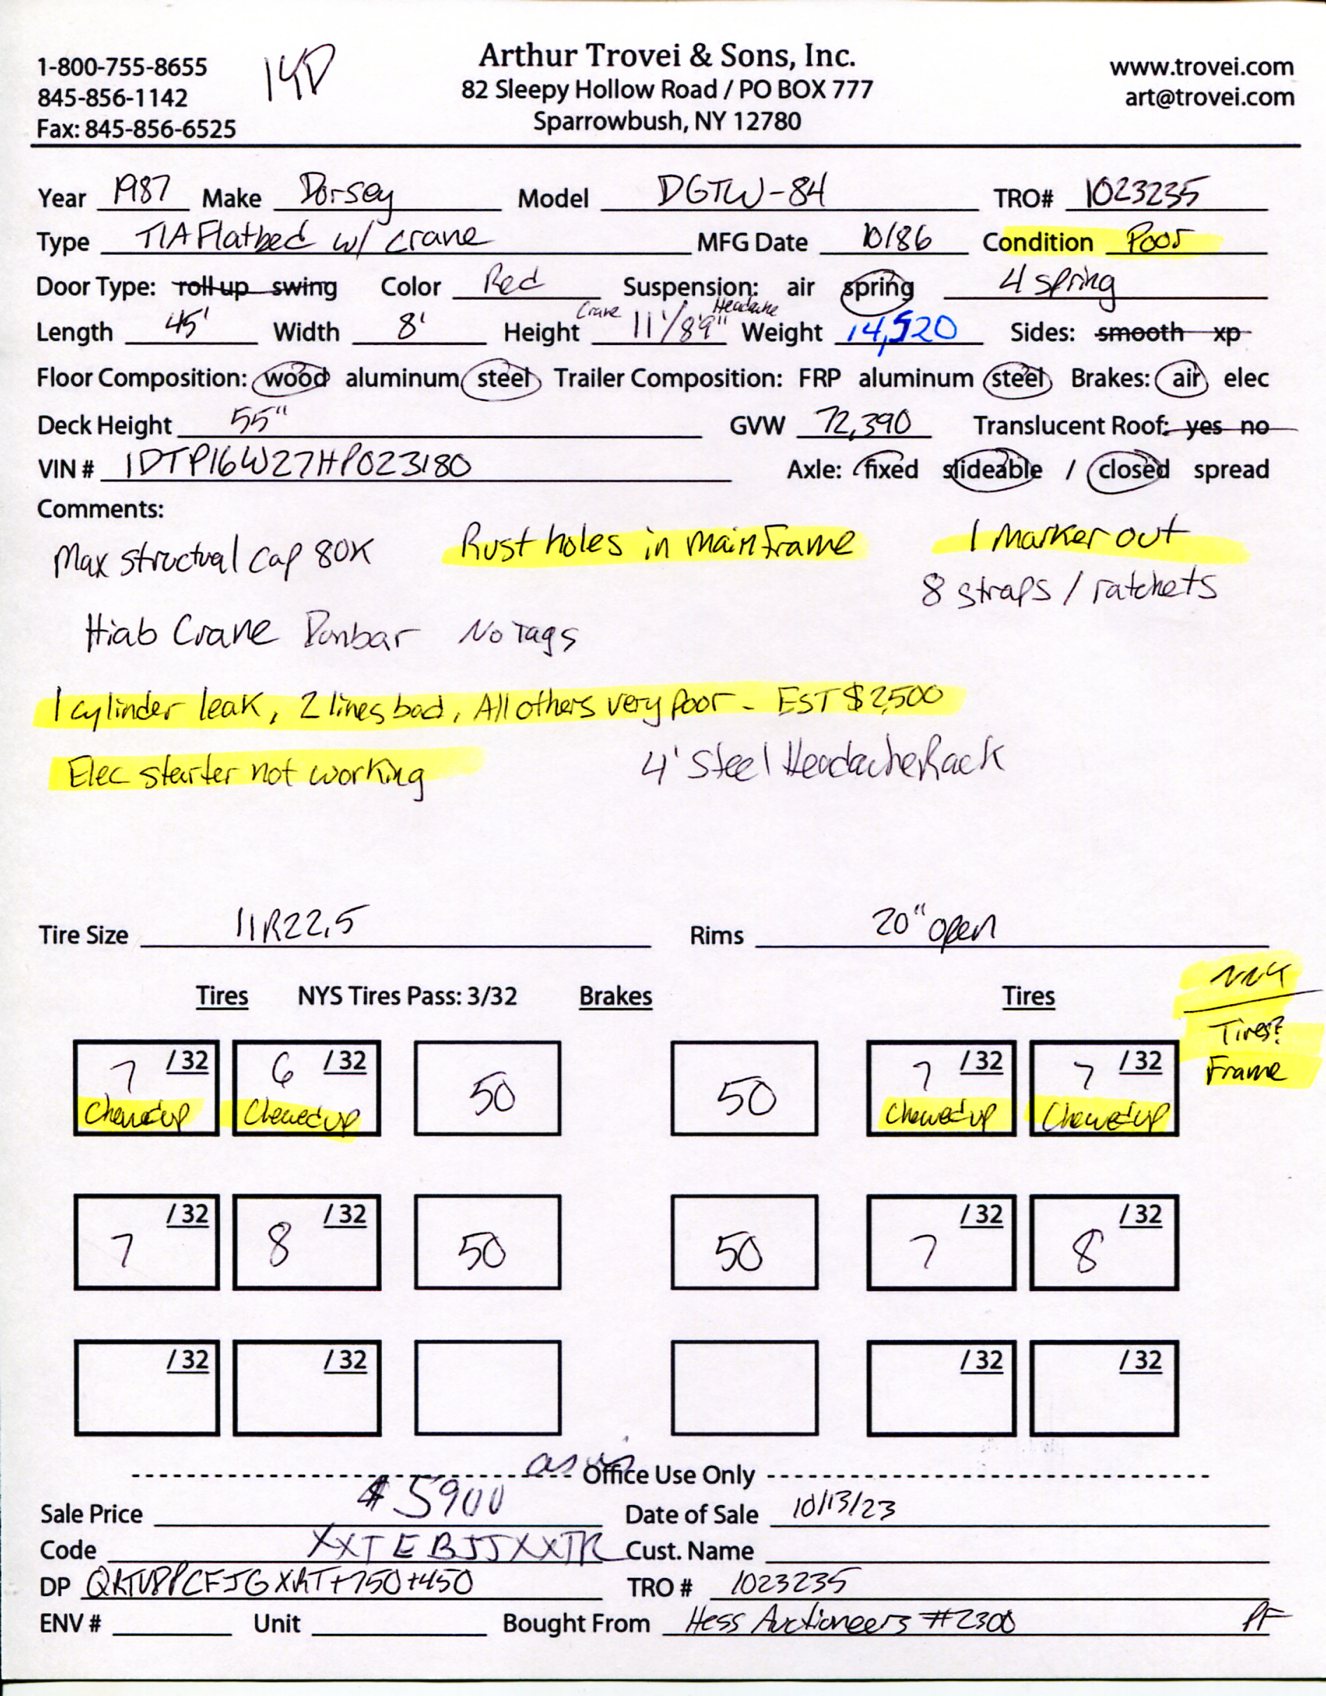 1-800-755-8655
845-856-1142
Fax: 845-856-6525
Arthur Trovei & Sons, Inc.
82 Sleepy Hollow Road / PO BOX 777
Sparrowbush, NY 12780
www.trovei.com
art@trovei.com
Year 1987 Make Dorsey Model DGTW-84 TRO# 1023235
Type T/A Flatbed w/ crane MFG Date 10/86 Condition Poor
Door Type: roll up swing Color Red Suspension: air spring 4 spring
Length 45' Width 8' Height Crane 11'/8'9" Headache Weight 14,520 Sides: smooth xp
Floor Composition: wood aluminum steel Trailer Composition: FRP aluminum steel Brakes: air elec
Deck Height 55" GVW 72,390 Translucent Roof: yes no
VIN # 1DTP16W27HP023180 Axle: fixed slideable / closed spread
Comments:
Max structual cap 80K Rust holes in main frame 1 marker out
8 straps / ratchets
Hiab Crane Dunbar No Tags
1 cylinder leak, 2 lines bad, All others very poor - EST $2,500
Elec starter not working 4' Steel Headache Rack
Tire Size 11R22.5 Rims 20" open
Tires NYS Tires Pass: 3/32 Brakes Tires
NNY
Tires?
Frame
7 /32 6 /32 50 50 7 /32 7 /32
Chewed up Chewed up Chewed up Chewed up
7 /32 8 /32 50 50 7 /32 8 /32
/32 /32 /32 /32
as is
Office Use Only
Sale Price $5900 Date of Sale 10/13/23
Code XXTEBJJXXTR Cust. Name
DP TRO # 1023235
ENV # Unit Bought From Hess Auctioneers #2300 PF